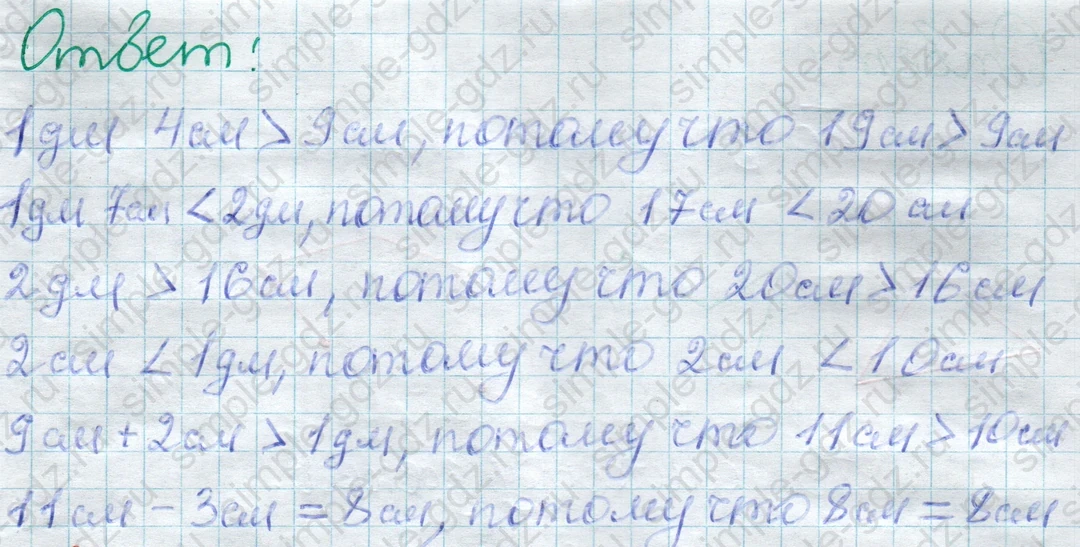 Ответ:
1дм 4см > 9см, потому что 19см > 9см
1дм 7см < 2дм, потому что 17см < 20 см
2дм > 16см, потому что 20см > 16см
2см < 1дм, потому что 2см < 10см
9см + 2см > 1дм, потому что 11см > 10см
11см - 3см = 8см, потому что 8см = 8см
simple-gdz.ru